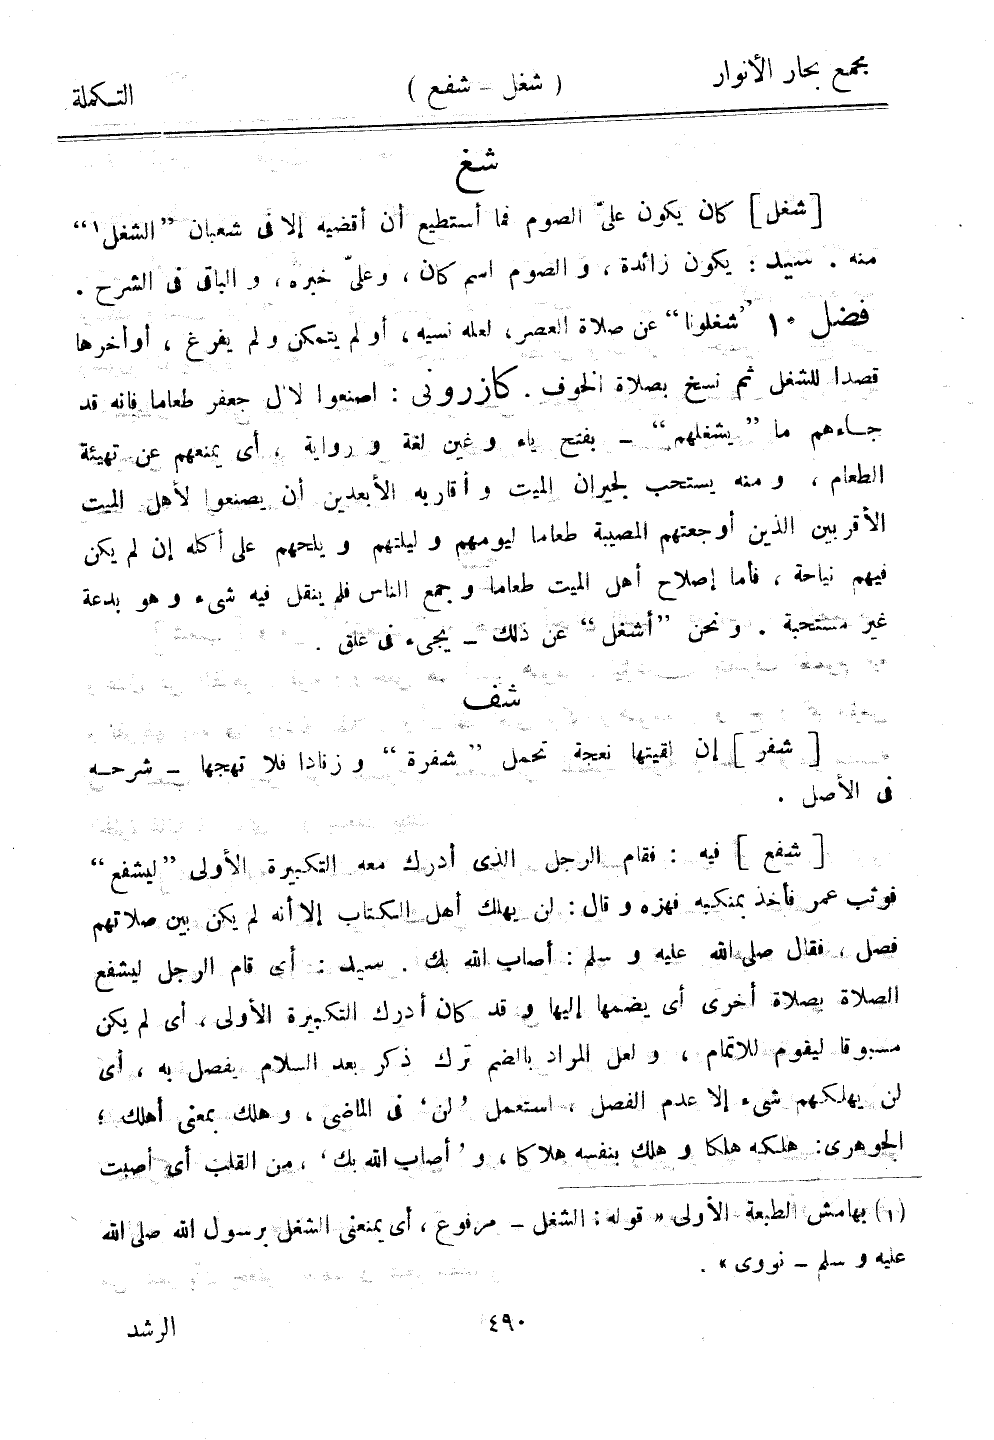 مجمع بحار الأنوار ( شغل - شفع ) التكملة
شغ
[شغل] كان يكون علىّ الصوم فما أستطيع أن أقضيه إلا فى شعبان ”الشغل١“
منه . سيد : يكون زائدة ، و الصوم اسم كان ، وعلىّ خبره ، و الباقى فى الشرح .
فضل ١٠ ”شغلونا“ عن صلاة العصر، لعله نسيه ، أو لم يتمكن ولم يفرغ ، أو أخرها
قصدا للشغل ثم نسخ بصلاة الخوف . كازرونى : اصنعوا لآل جعفر طعاما فانه قد
جاءهم ما ”يشغلهم“ – بفتح ياء و غين لغة و رواية ، أى يمنعهم عن تهيئة
الطعام ، و منه يستحب لجيران الميت و أقاربه الأبعدين أن يصنعوا لأهل الميت
الأقربين الذين أوجعتهم المصيبة طعاما ليومهم و ليلتهم و يلحهم على أكله إن لم يكن
فيهم نياحة ، فأما إصلاح أهل الميت طعاما و جمع الناس فلم ينقل فيه شىء و هو بدعة
غير مستحبة . و نحن ”أشغل“ عن ذلك – يجىء فى غلق .
شف
[ شفر ] إن لقيتها نعجة تحمل ” شفرة “ و زنادا فلا تهجها – شرحه
فى الأصل .
[ شفع ] فيه : فقام الرجل الذى أدرك معه التكبيرة الأولى ”ليشفع“
فوثب عمر فأخذ بمنكبه فهزه و قال : لن يهلك أهل الكتاب إلا أنه لم يكن بين صلاتهم
فصل ، فقال صلى الله عليه و سلم : أصاب الله بك . سيد : أى قام الرجل ليشفع
الصلاة بصلاة أخرى أى يضمها إليها و قد كان أدرك التكبيرة الأولى ، أى لم يكن
مسبوقا ليقوم للاتمام ، و لعل المراد بالضم ترك ذكر بعد السلام يفصل به ، أى
لن يهلكهم شىء إلا عدم الفصل ، استعمل ’لن‘ فى الماضى ، و هلك بمعنى أهلك ؛
الجوهرى: هلكه هلكا و هلك بنفسه هلاكا ، و ’أصاب الله بك‘ ، من القلب أى أصبت
(١) بهامش الطبعة الأولى « قوله : الشغل – مرفوع ، أى يمنعنى الشغل برسول الله صلى الله
عليه و سلم – نووى » .
٤٩٠ الرشد